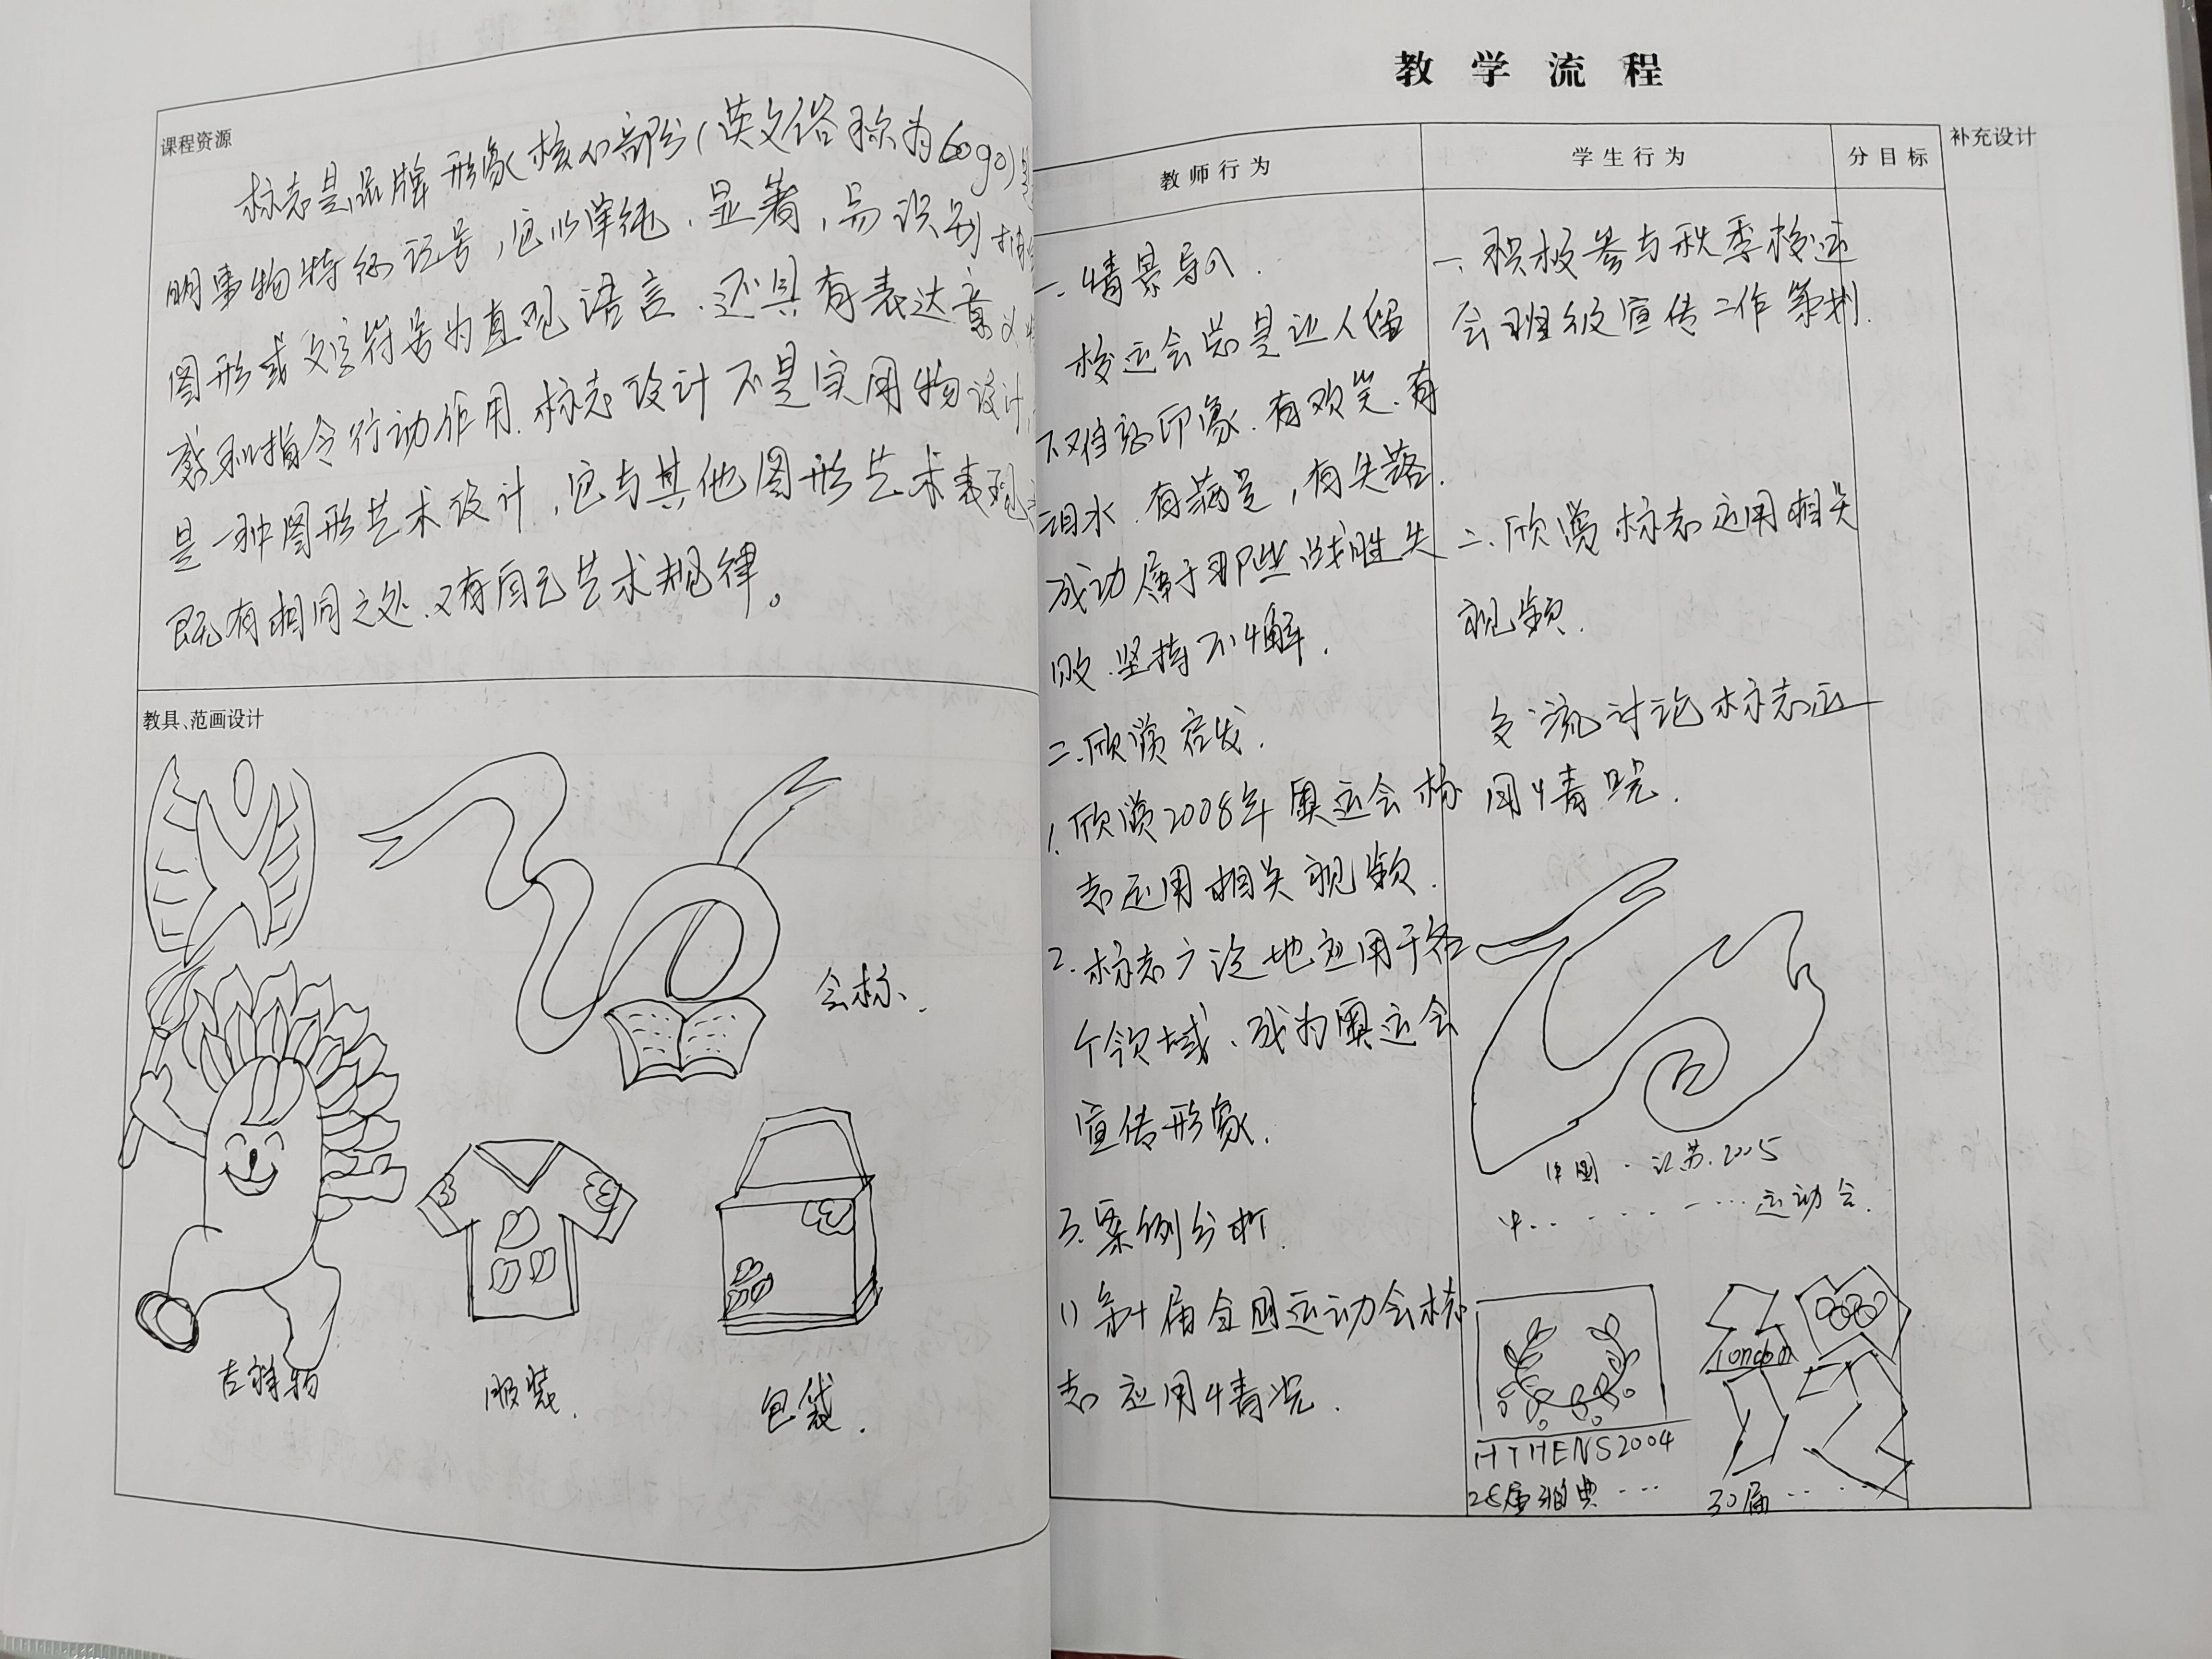 课程资源
标志是品牌形象核心部分(英文俗称为logo)
明事物特征记号,它以单纯、显著、易识别
图形或文字符号为直观语言,还具有表达意义
感和指令行动作用.标志设计不是实用物设计,
是一种图形艺术设计,它与其他图形艺术表现
既有相同之处,又有自己艺术规律。
教具、范画设计
会标.
吉祥物
服装.
包袋.
教学流程
教师行为
学生行为
分目标
补充设计
一.情景导入.
校运会总是让人留
下难忘印象.有欢笑.有
泪水.有满足,有失落.
成功属于那些战胜失
败.坚持不懈.
二.欣赏启发.
1.欣赏2008年奥运会标
志运用相关视频.
2.标志广泛地应用于各
个领域、成为奥运会
宣传形象.
3.案例分析.
1)第十届全国运动会标
志应用情况.
一、积极参与秋季校运
会班级宣传工作策划.
二.欣赏标志运用相关
视频.
交流讨论标志运
用情况.
中国·江苏.2005
中......运动会.
ATHENS2004
28届雅典...
london
30届....